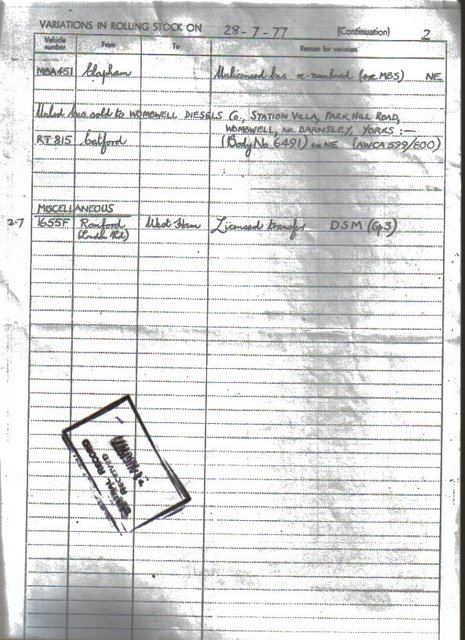 VARIATIONS IN ROLLING STOCK ON 28-7-77 (Continuation) 2
Vehicle number From To Reason for variation
MBA451 Clapham Unlicensed bus re-numbered (ex MBS) NE
Unlcd bus sold to WOMBWELL DIESELS Co., STATION VILLA, PARK HILL ROAD,
WOMBWELL, NR. BARNSLEY, YORKS :—
RT815 Catford (Body No. 6491) ex NE (AWCA 599/E00)
MISCELLANEOUS
2-7 1655F Romford West Ham Licensed transfer DSM (GS)
(Lndn Rd)
RECEIVED